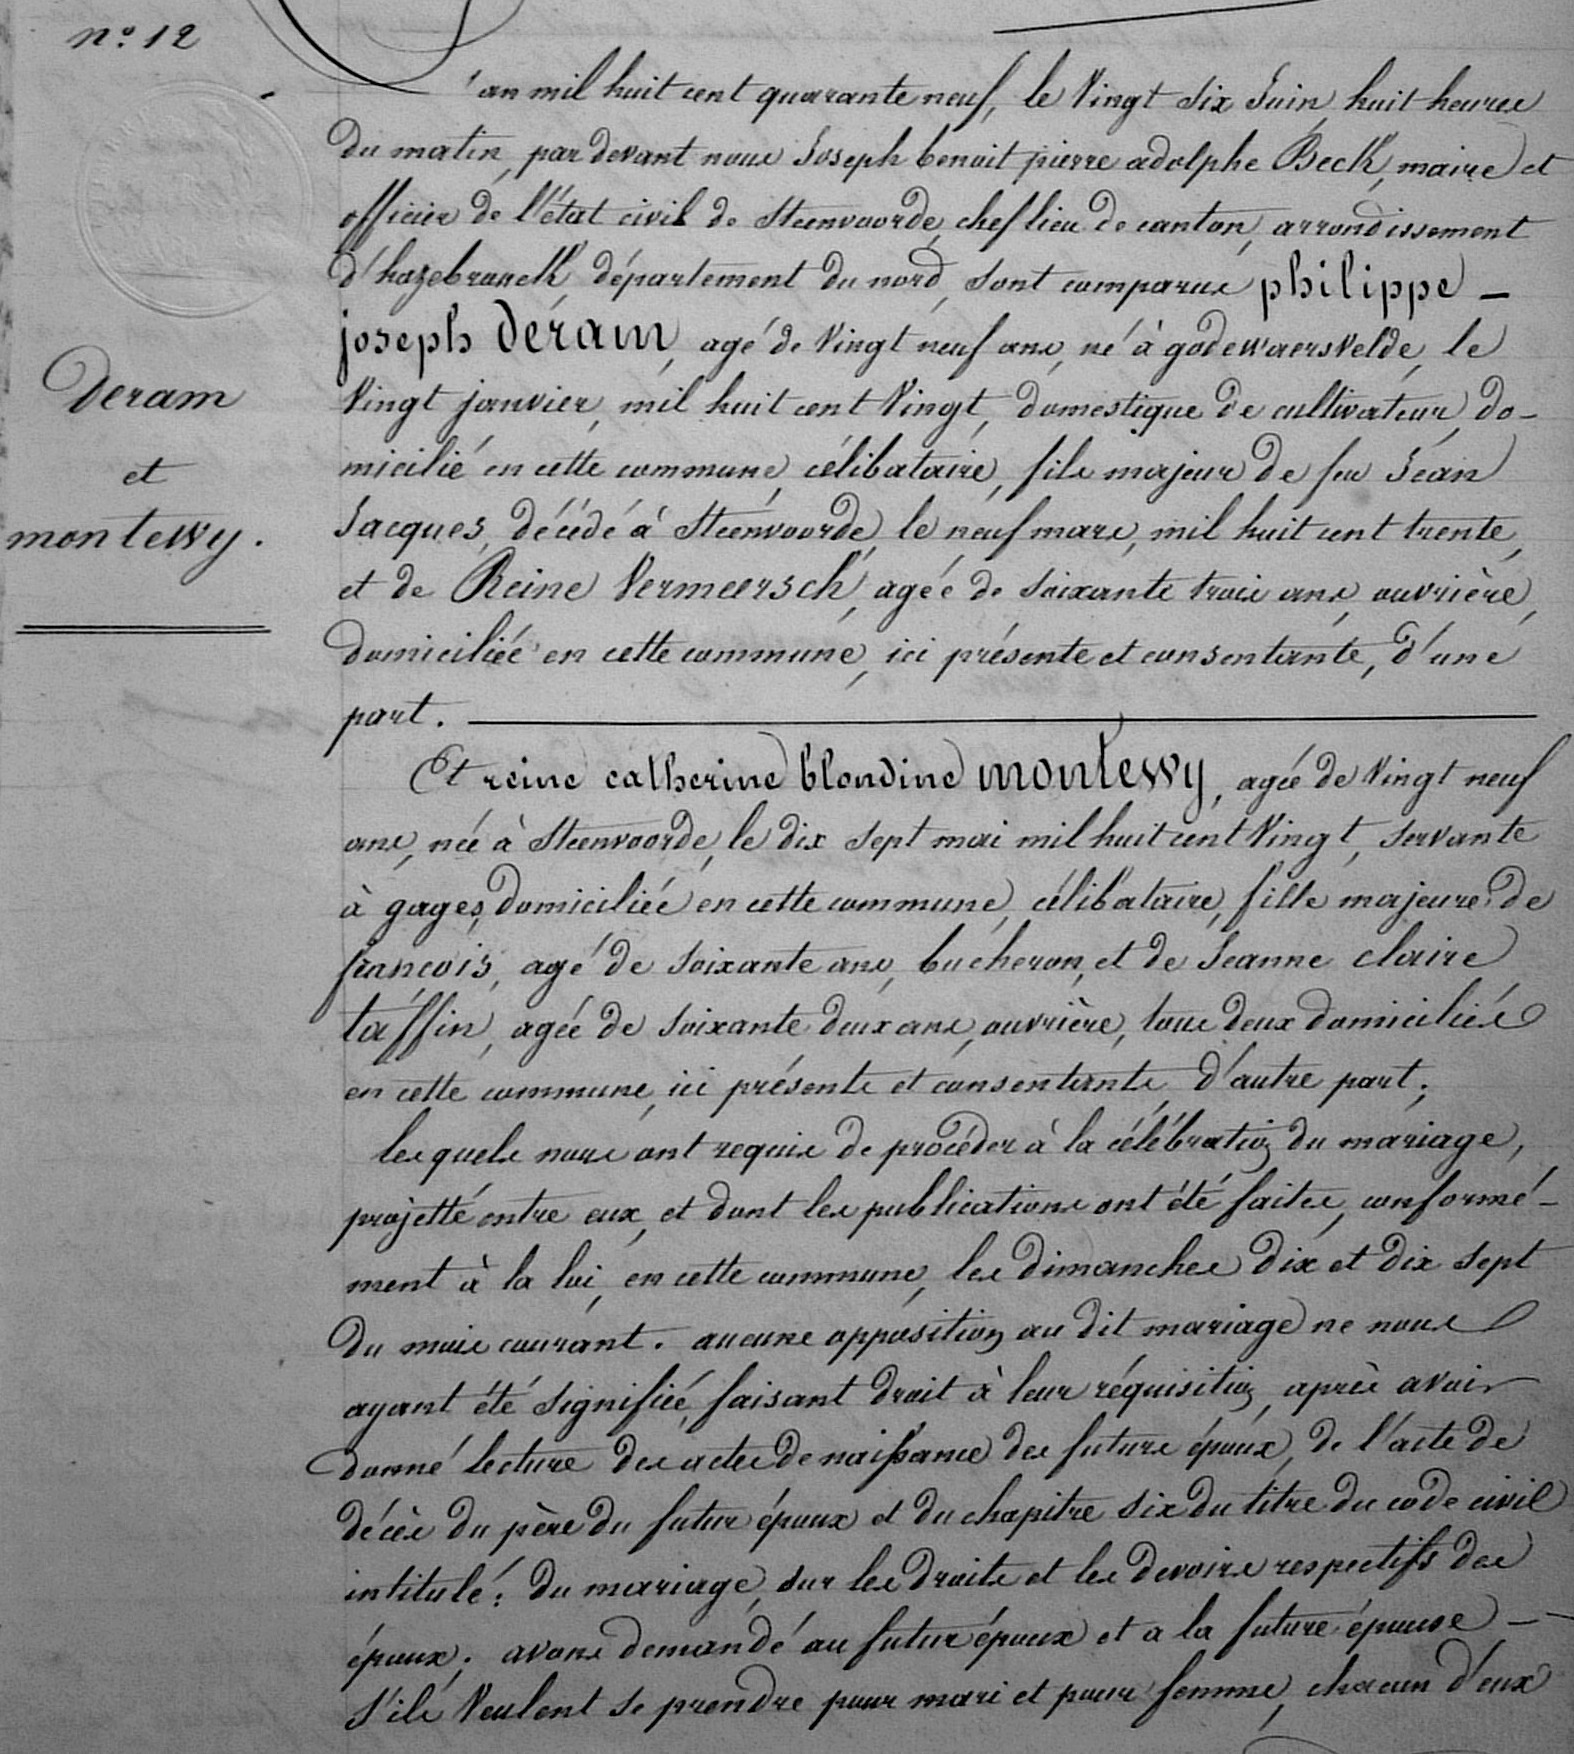 n.° 12
Deram
et
montewy.
L'an mil huit cent quarante neuf, le Vingt Six Juin, huit heures
du matin, par devant nous Joseph benoit pierre adolphe Beck, maire et
officier de l'état civil de Steenvoorde, chef lieu de canton, arrondissement
d'hazebrouck, département du nord, sont comparus philippe -
joseph Déram, agé de Vingt neuf ans, né à godewaersvelde, le
Vingt janvier, mil huit cent Vingt, domestique de cultivateur, do-
micilié en cette commune, célibataire, fils majeur de feu Jean
Jacques, décédé à Steenvoorde, le neuf mars, mil huit cent trente,
et de Reine Vermeersch, agée de soixante trois ans, ouvrière,
domiciliée en cette commune, ici présente et consentante, d'une
part.
Et reine catherine blondine montewy, agée de Vingt neuf
ans, née à Steenvoorde, le dix sept mai mil huit cent Vingt, servante
à gages, domiciliée en cette commune, célibataire, fille majeure de
françois, agé de soixante ans, bucheron, et de Jeanne claire
taffin, agée de soixante deux ans, ouvrière, tous deux domiciliés
en cette commune, ici présents et consentants, d'autre part;
lesquels nous ont requis de procéder à la célébration du mariage,
projetté entre eux, et dont les publications ont été faites, conformé-
ment à la loi, en cette commune, les dimanches dix et dix sept
du mois courant. aucune opposition au dit mariage ne nous
ayant été signifiée, faisant droit à leur réquisition, après avoir
donné lecture des actes de naissance des futurs époux, de l'acte de
décès du père du futur époux et du chapitre six du titre du code civil
intitulé: du mariage, sur les droits et les devoirs respectifs des
époux; avons demandé au futur époux et a la future épouse -
s'ils Veulent se prendre pour mari et pour femme, chacun d'eux